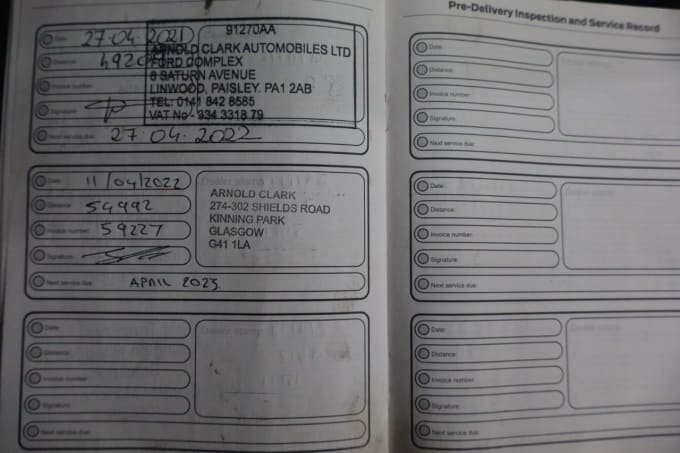 Pre-Delivery Inspection and Service Record
Date: 27·04 2021
Distance:
Invoice number:
Signature:
Next service due: 27·04·2022
91270AA
ARNOLD CLARK AUTOMOBILES LTD
FORD COMPLEX
8 SATURN AVENUE
LINWOOD, PAISLEY. PA1 2AB
TEL: 0141 842 8585
VAT No - 934 3318 79
Date: 11/04/2022
Distance: 54992
Invoice number: 59227
Signature:
Next service due: APRIL 2023.
Dealer stamp
ARNOLD CLARK
274-302 SHIELDS ROAD
KINNING PARK
GLASGOW
G41 1LA
Date:
Distance:
Invoice number:
Signature:
Next service due:
Dealer stamp
Date:
Distance:
Invoice number:
Signature:
Next service due:
Dealer stamp
Date:
Distance:
Invoice number:
Signature:
Next service due:
Dealer stamp
Date:
Distance:
Invoice number:
Signature:
Next service due:
Dealer stamp